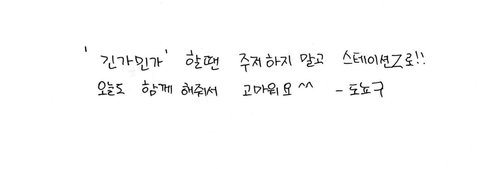 '긴가민가' 할땐 주저하지 말고 스테이션Z로!!
오늘도 함께 해줘서 고마워요^^ - 도뇨구